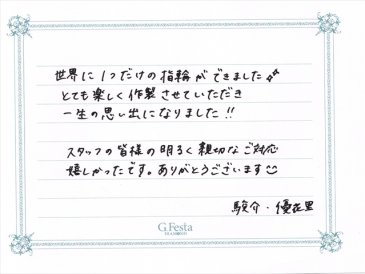 世界に1つだけの指輪ができました
とても楽しく作製させていただき
一生の思い出になりました!!
スタッフの皆様の明るく親切なご対応
嬉しかったです。ありがとうございます
駿介・優花里
G.Festa